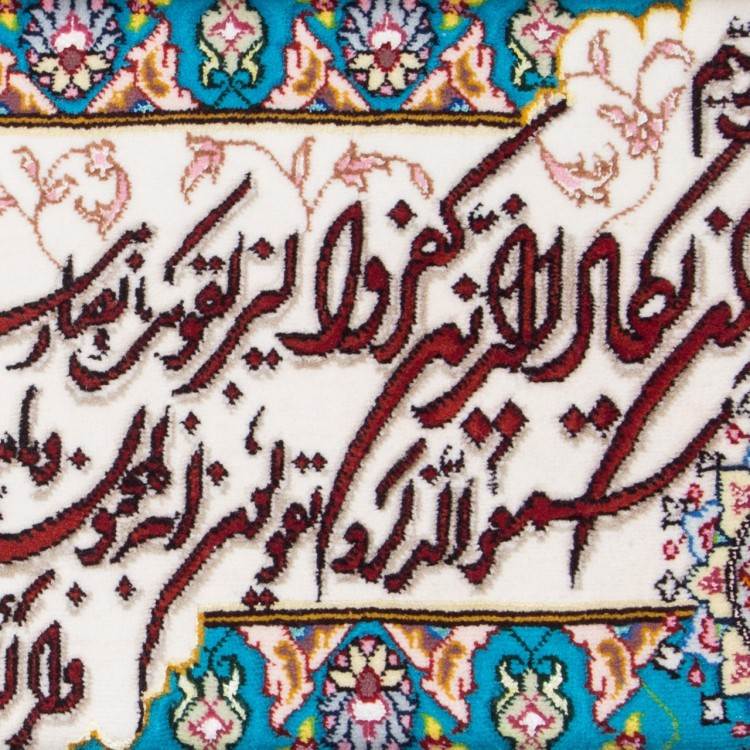 یکاد الذین کفروا لیزلقونک بابصار
سمعوا الذکر و یقولون انه لمجنون وما